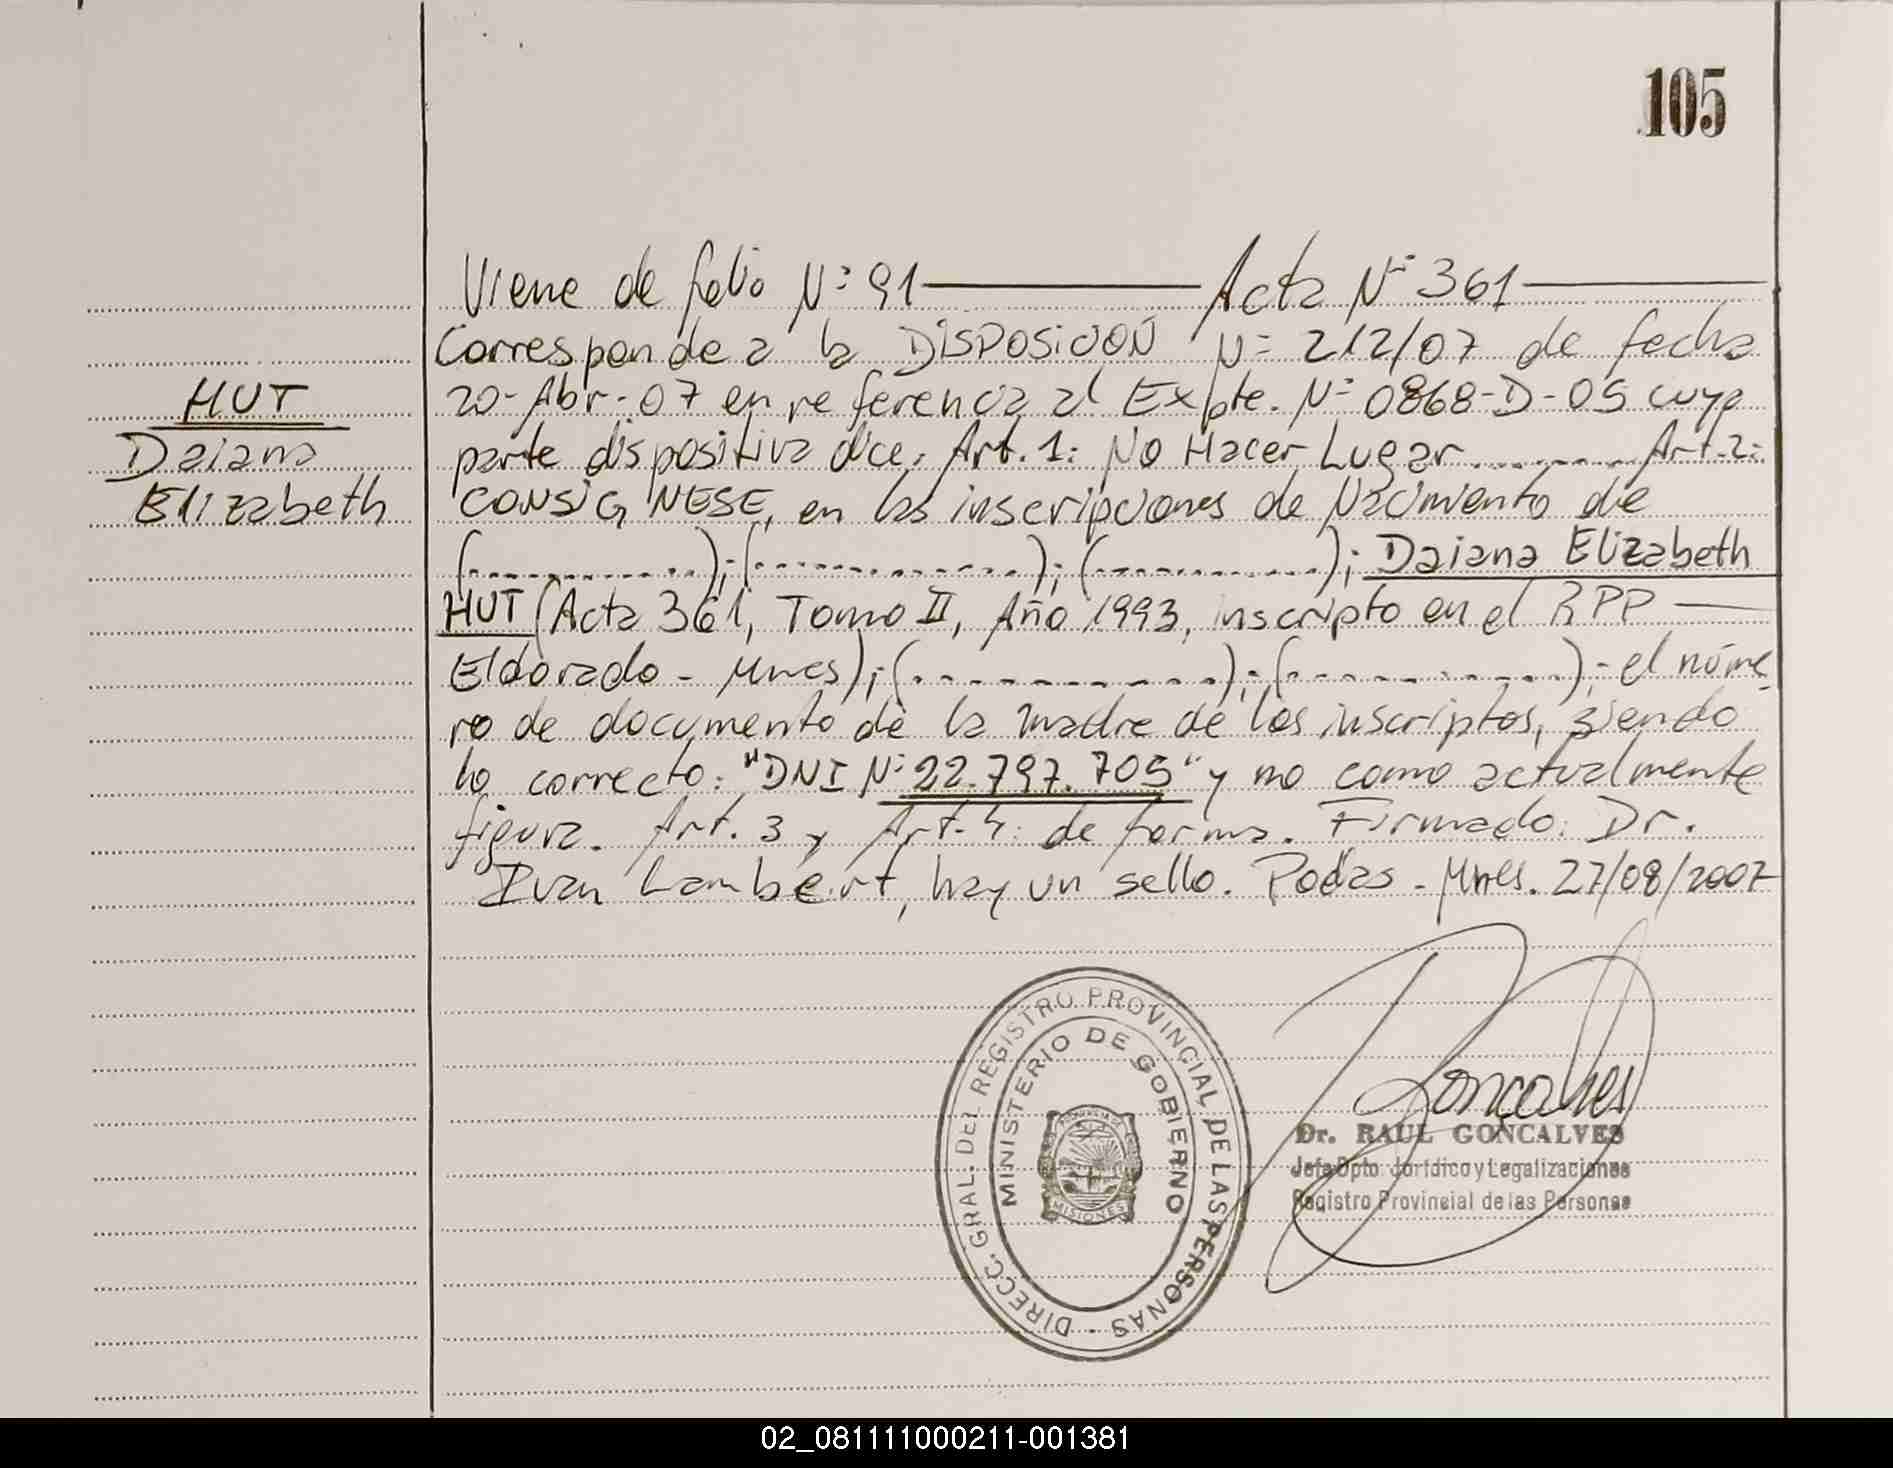 105
Viene de folio Nº 91 Acta Nº 361
Corresponde a la DISPOSICIÓN Nº 212/07 de fecha
HUT
20-Abr-07 en referencia al Expte. Nº 0868-D-05 cuya
Daiana
parte dispositiva dice: Art. 1: No Hacer Lugar ........ Art. 2:
Elizabeth
CONSIGNESE, en las inscripciones de Nacimiento de
(............); (...............); (............); Daiana Elizabeth
HUT (Acta 361, Tomo II, Año 1993, inscripto en el RPP
Eldorado - Mnes); (............); (............); el núme
ro de documento de la madre de los inscriptos, siendo
lo correcto: "DNI Nº 22.797.705" y no como actualmente
figura. Art. 3 y Art. 4: de forma. Firmado: Dr.
Ivan Lambert, hay un sello. Podas - Mnes. 27/08/2007
DIRECC. GRAL. DEL REGISTRO PROVINCIAL DE LAS PERSONAS -
MINISTERIO DE GOBIERNO
MISIONES
Dr. RAUL GONCALVES
Jefe Dpto. Jurídico y Legalizaciones
Registro Provincial de las Personas
02_081111000211-001381